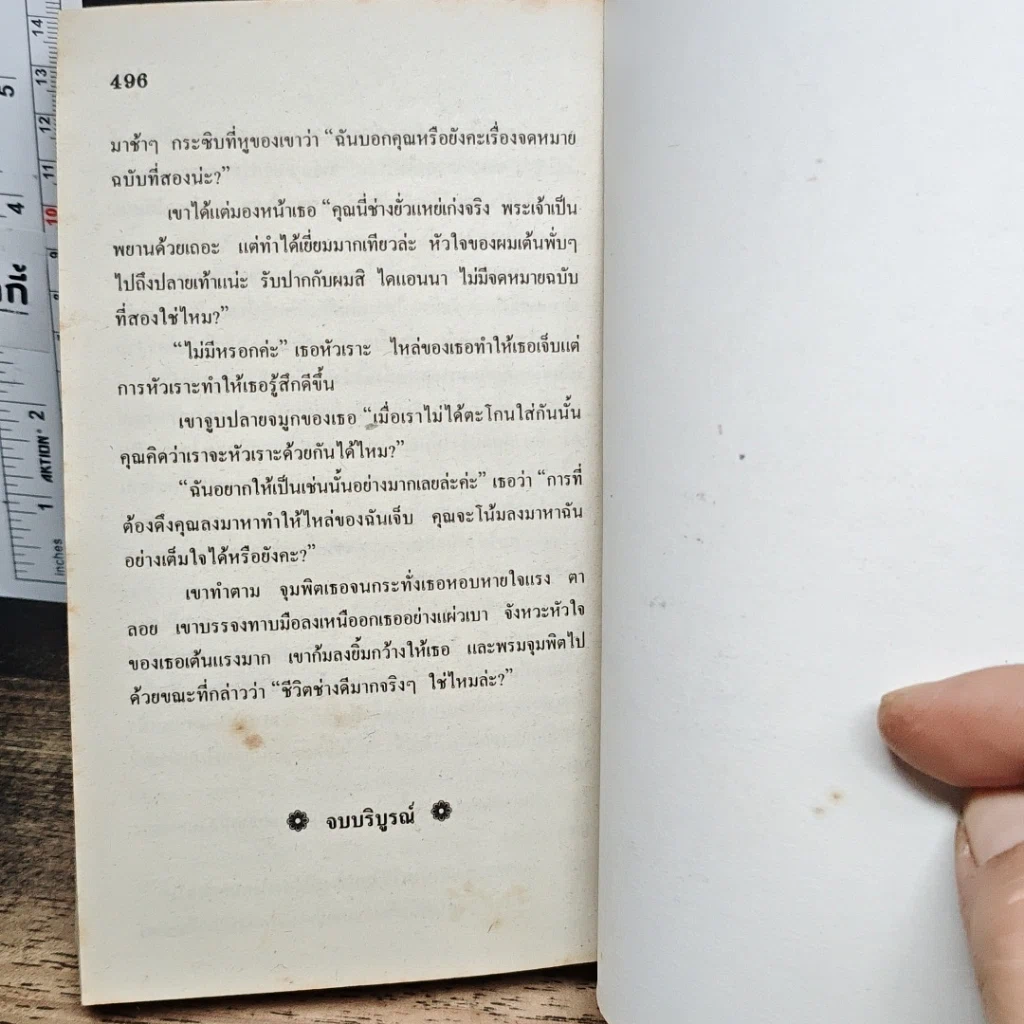 496
มาช้าๆ กระซิบที่หูของเขาว่า “ฉันบอกคุณหรือยังคะเรื่องจดหมาย
ฉบับที่สองน่ะ?”
เขาได้แต่มองหน้าเธอ “คุณนี่ช่างยั่วแหย่เก่งจริง พระเจ้าเป็น
พยานด้วยเถอะ แต่ทำได้เยี่ยมมากเทียวล่ะ หัวใจของผมเต้นพั่บๆ
ไปถึงปลายเท้าแน่ะ รับปากกับผมสิ ไดแอนนา ไม่มีจดหมายฉบับ
ที่สองใช่ไหม?”
“ไม่มีหรอกค่ะ” เธอหัวเราะ ไหล่ของเธอทำให้เธอเจ็บแต่
การหัวเราะทำให้เธอรู้สึกดีขึ้น
เขาจูบปลายจมูกของเธอ “เมื่อเราไม่ได้ตะโกนใส่กันนั้น
คุณคิดว่าเราจะหัวเราะด้วยกันได้ไหม?”
“ฉันอยากให้เป็นเช่นนั้นอย่างมากเลยล่ะค่ะ” เธอว่า “การที่
ต้องดึงคุณลงมาหาทำให้ไหล่ของฉันเจ็บ คุณจะโน้มลงมาหาฉัน
อย่างเต็มใจได้หรือยังคะ?”
เขาทำตาม จุมพิตเธอจนกระทั่งเธอหอบหายใจแรง ตา
ลอย เขาบรรจงทาบมือลงเหนืออกเธออย่างแผ่วเบา จังหวะหัวใจ
ของเธอเต้นแรงมาก เขาก้มลงยิ้มกว้างให้เธอ และพรมจุมพิตไป
ด้วยขณะที่กล่าวว่า “ชีวิตช่างดีมากจริงๆ ใช่ไหมล่ะ?”
จบบริบูรณ์
14
13
12
11
10
9
5
4
2
1
AKTION
inches